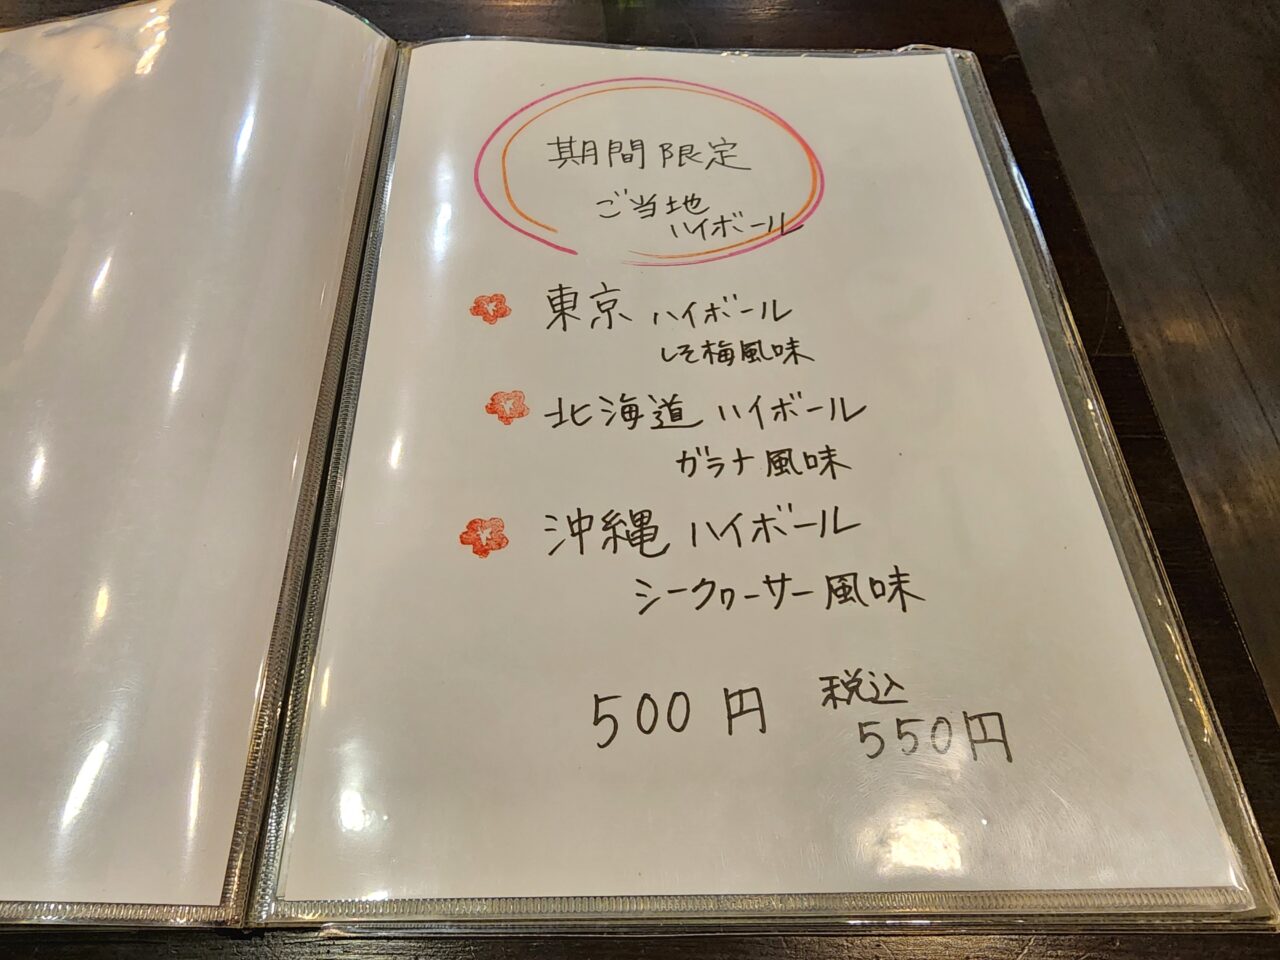 期間限定
ご当地
ハイボール
東京 ハイボール
しそ梅風味
北海道 ハイボール
ガラナ風味
沖縄 ハイボール
シークヮーサー風味
500円 税込
550円